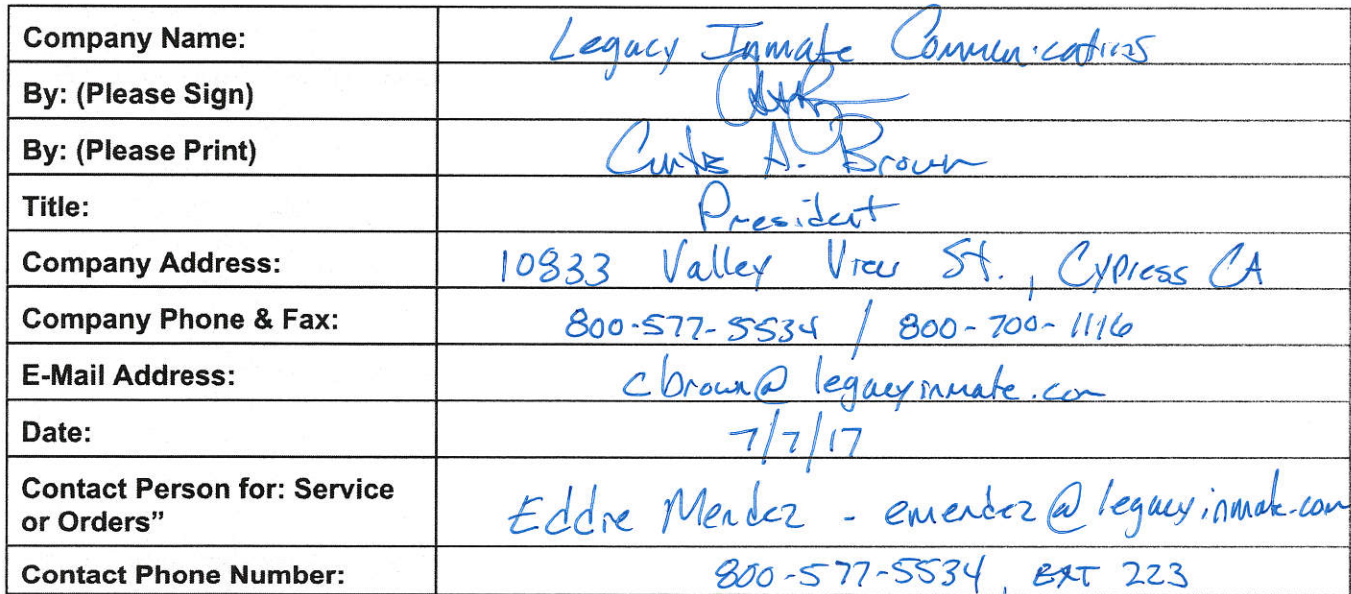 Company Name: Legacy Inmate Communications
By: (Please Sign)
By: (Please Print) Curtis A. Brown
Title: President
Company Address: 10833 Valley View St., Cypress CA
Company Phone & Fax: 800-577-5534 / 800-700-1116
E-Mail Address: cbrown@legacyinmate.com
Date: 7/7/17
Contact Person for: Service
or Orders” Eddie Mendez - emendez@legacyinmate.com
Contact Phone Number: 800-577-5534, EXT 223